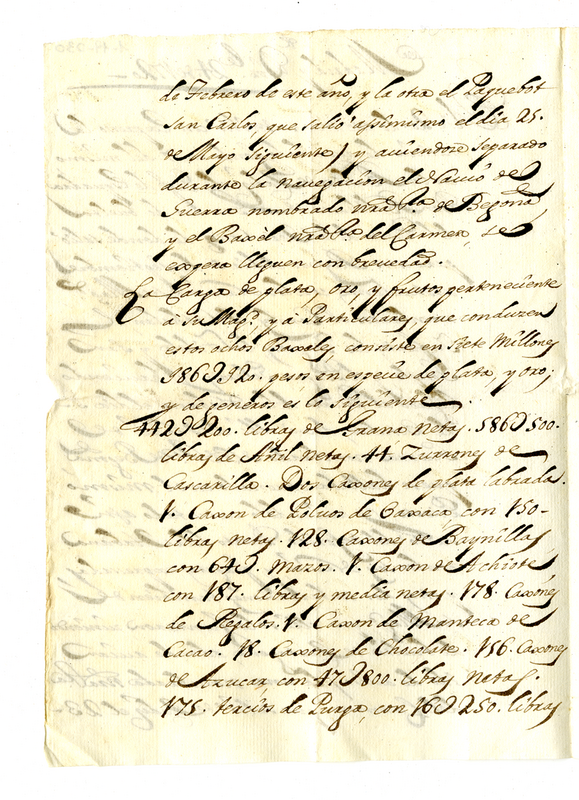 de Febrero de este año, y la otra el Paquebot
San Carlos, que salio assimismo el dia 25.
de Mayo siguiente) y aviendose separado
durante la navegacion el Navio de
Guerra nombrado nrã Srã. de Begoña,
y el Baxèl nrã Srã. del Carmen, se
espera lleguen con brevedad.
La Carga de plata, oro, y frutos perteneciente
â Su Magd. y â Particulares, que conducen
estos ochos Baxeles consiste en Siete Millones
pesos en especie de plata, y oro;
y de generos es la siguiente.
libras de Grana netas. 586D500.
libras de Añil netas. 44. Zurrones de
Cascarilla. Dos Caxones de plata labrada.
1. Caxon de Polvos de Oaxaca, con 150-
libras netas. 128. Caxones de Baynillas
con 64D. Mazos. 1. Caxon de Achiote
con 187. libras y media netas. 178. Caxones
de Regalos. 1. Caxon de Manteca de
Cacao. 18. Caxones de Chocolate. 156. Caxones
de Azucar, con 47D800. libras netas.
175. tercios de Purga, con 16D250. libras